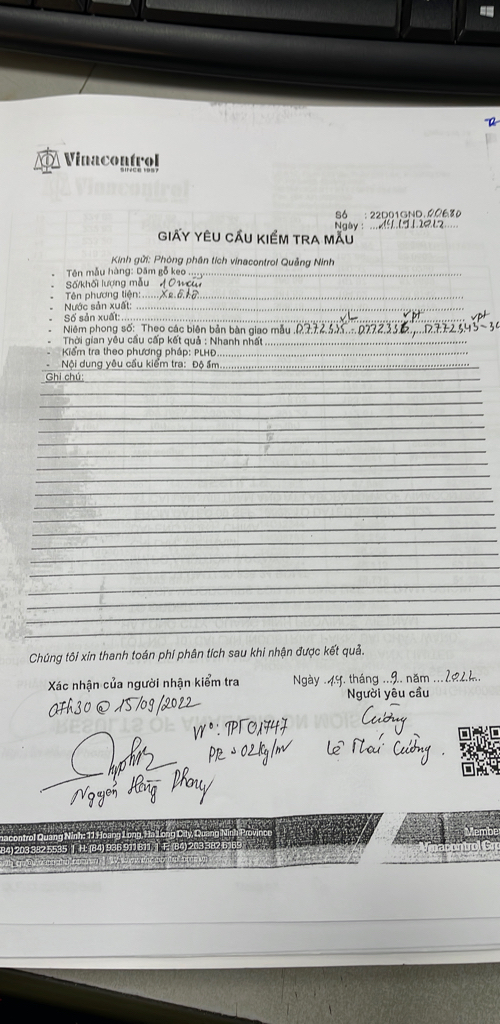 Vinacontrol
SINCE 1957
Số : 22D01GND.00680
Ngày : ...14.191.2022.....
GIẤY YÊU CẦU KIỂM TRA MẪU
Kính gửi: Phòng phân tích vinacontrol Quảng Ninh
- Tên mẫu hàng: Dăm gỗ keo
- Số/khối lượng mẫu 10 mẫu
- Tên phương tiện:
- Nước sản xuất:
- Số sản xuất:
- Niêm phong số: Theo các biên bản bàn giao mẫu 0772335 - 0772336, 0772345-
- Thời gian yêu cầu cấp kết quả : Nhanh nhất
- Kiểm tra theo phương pháp: PLHĐ
- Nội dung yêu cầu kiểm tra: Độ ẩm
Ghi chú:
Chúng tôi xin thanh toán phí phân tích sau khi nhận được kết quả.
Ngày .14. tháng ..9.. năm ...2022..
Xác nhận của người nhận kiểm tra
Người yêu cầu
07h30 @ 15/09/2022
Cường
N°: TPT01747
PR = 02kg/m
Lê Mai Cường .
Nguyễn Hồng Phong
nacontrol Quang Ninh: 11 Hoang Long, Ha Long City, Quang Ninh Province
84) 203 382 5535 | H: (84) 936 911 811 | F: (84) 203 382 6169
Member
Vinacontrol Gro